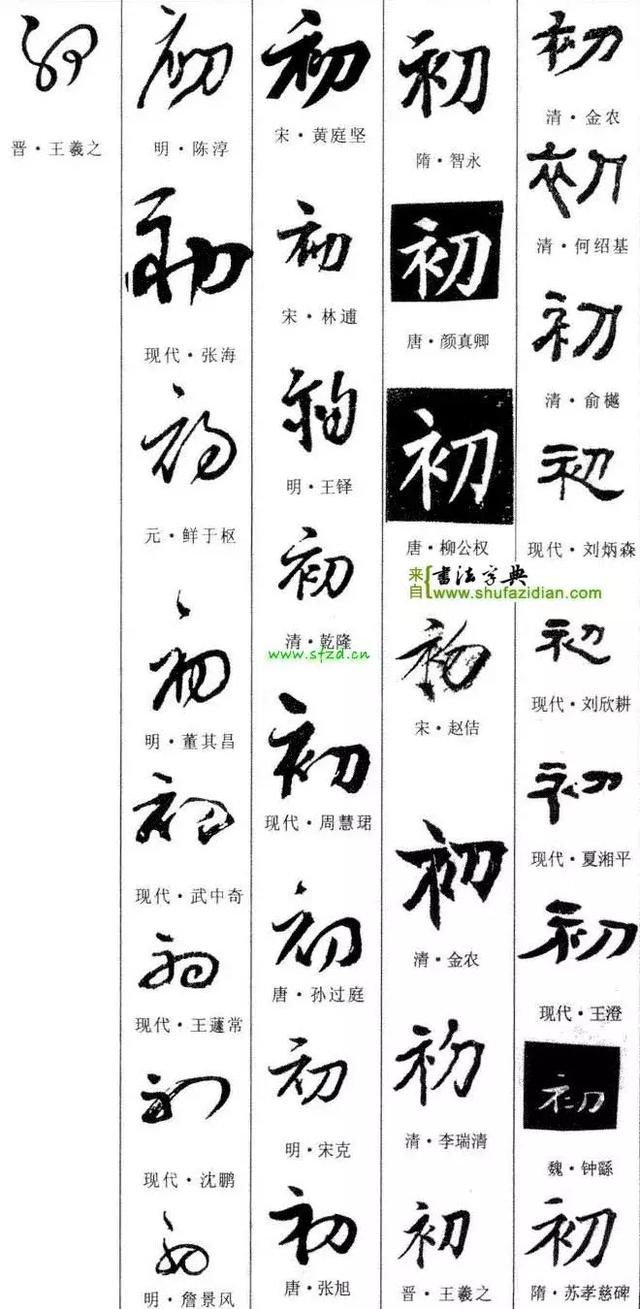 初
晋·王羲之
初
明·陈淳
初
现代·张海
初
元·鲜于枢
初
明·董其昌
初
现代·武中奇
初
现代·王蘧常
初
现代·沈鹏
初
明·詹景风
初
宋·黄庭坚
初
宋·林逋
初
明·王铎
初
清·乾隆
www.sfzd.cn
初
现代·周慧珺
初
唐·孙过庭
初
明·宋克
初
唐·张旭
初
隋·智永
初
唐·颜真卿
初
唐·柳公权
来自{書法字典
www.shufazidian.com
初
宋·赵佶
初
清·金农
初
清·李瑞清
初
晋·王羲之
初
清·金农
初
清·何绍基
初
清·俞樾
初
现代·刘炳森
初
现代·刘欣耕
初
现代·夏湘平
初
现代·王澄
初
魏·钟繇
初
隋·苏孝慈碑